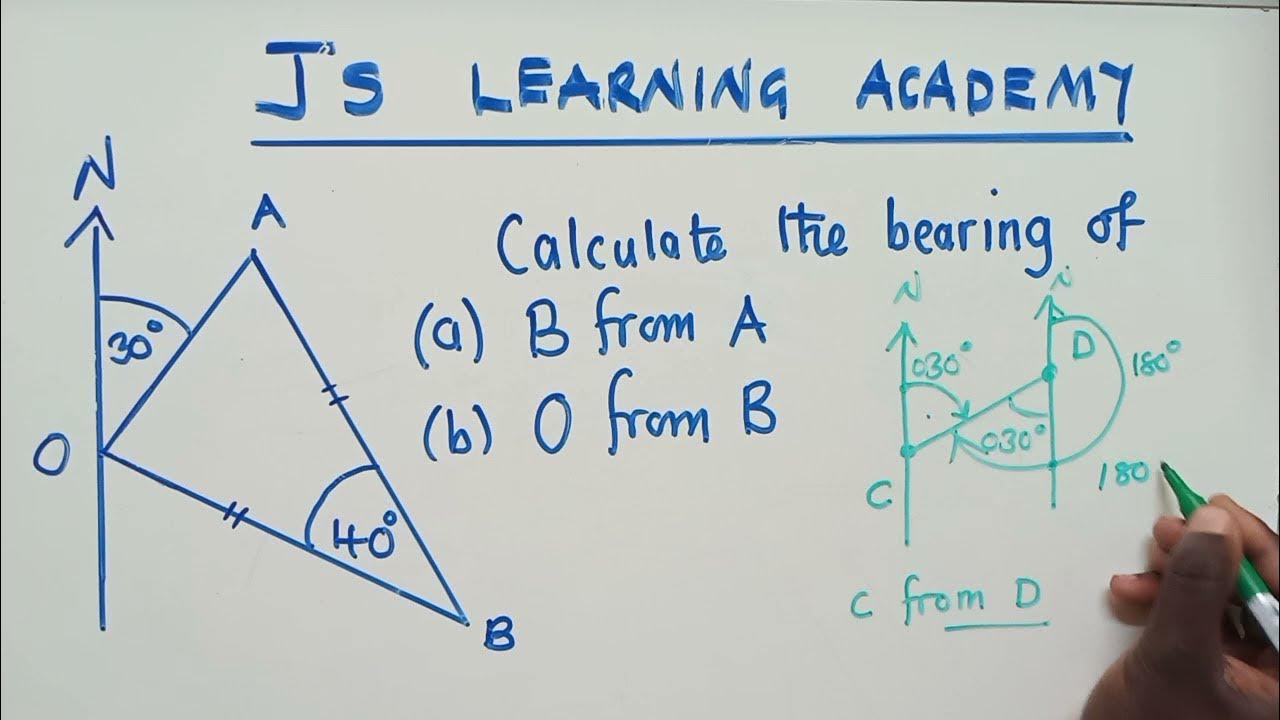 J's LEARNING ACADEMY
N
A
30°
O
40°
B
Calculate the bearing of
(a) B from A
(b) O from B
N
N
030°
D
180°
030°
C
180
C from D